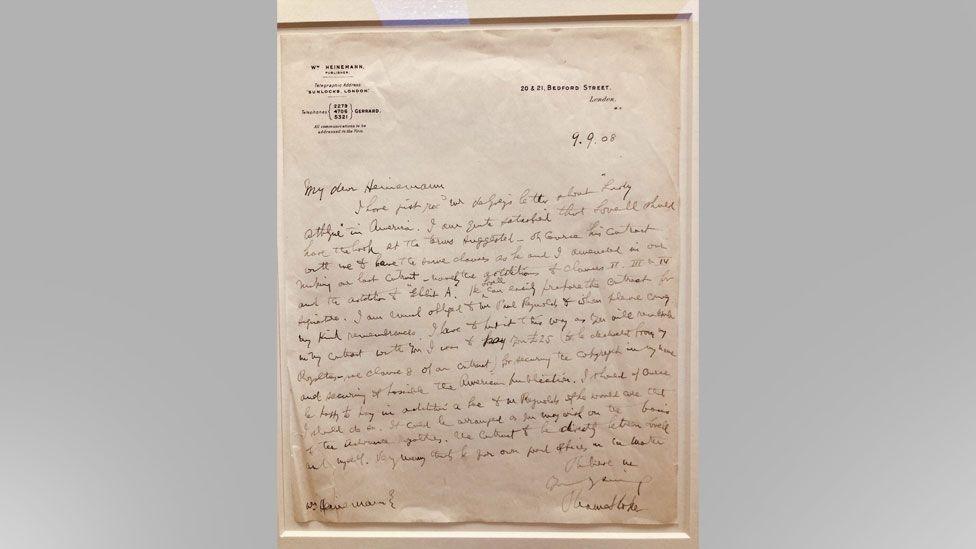 Wm HEINEMANN,
PUBLISHER.
Telegraphic Address
"SUNLOCKS, LONDON"
Telephones { 2279 4706 5321 } GERRARD.
All communications to be
addressed to the Firm.
20 & 21, BEDFORD STREET,
London,
W.C.
9.9.08
My dear Heinemann
I have just recd Mr letter about "Lady
Athlyne" in America. I am quite satisfied that Lovell should
have the book at the terms suggested – of course his contract
with me to have the same clauses as he and I amended in our
making our last contract – namely the additions to clauses II. III & 14
and the addition of "Exhibit A." He Lovell can easily prepare the contract for
signature. I am much obliged to Mr Paul Reynolds & when please convey
my kind remembrances. I have to put it this way as you will remember
in my contract with you I was to pay you £25 (to be deducted from my
Royalties – see clause 8 of our contract) for securing the copyright in my name
and securing if possible the American publication. I should of course
be happy to pay in addition a fee to Mr Reynolds if he would wish that
I should do so. It could be arranged as you may wish on the basis
of the advance royalties. The contract to be directly between Lovell
and myself. Very many thanks for your own good offices in the matter
Believe me
Yours
Bram Stoker
Wm Heinemann Esq